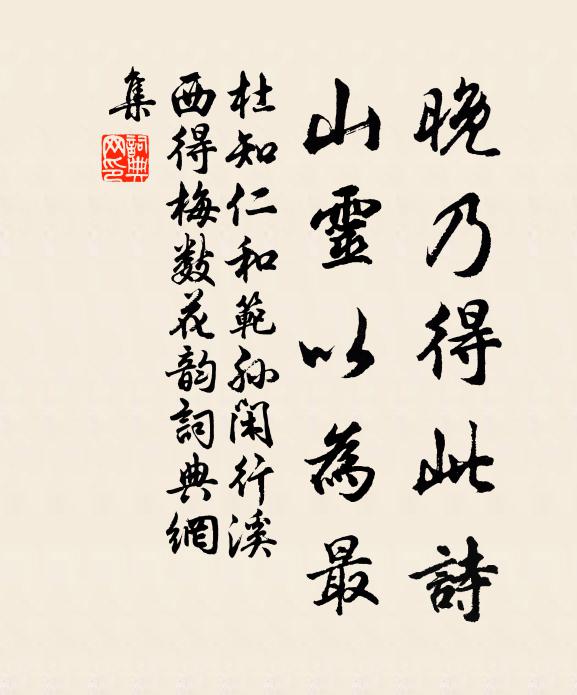 晚乃得此詩
山靈以為最
杜知仁和範孫閑行溪
西得梅數花韵詞典網
集
詞典
网印